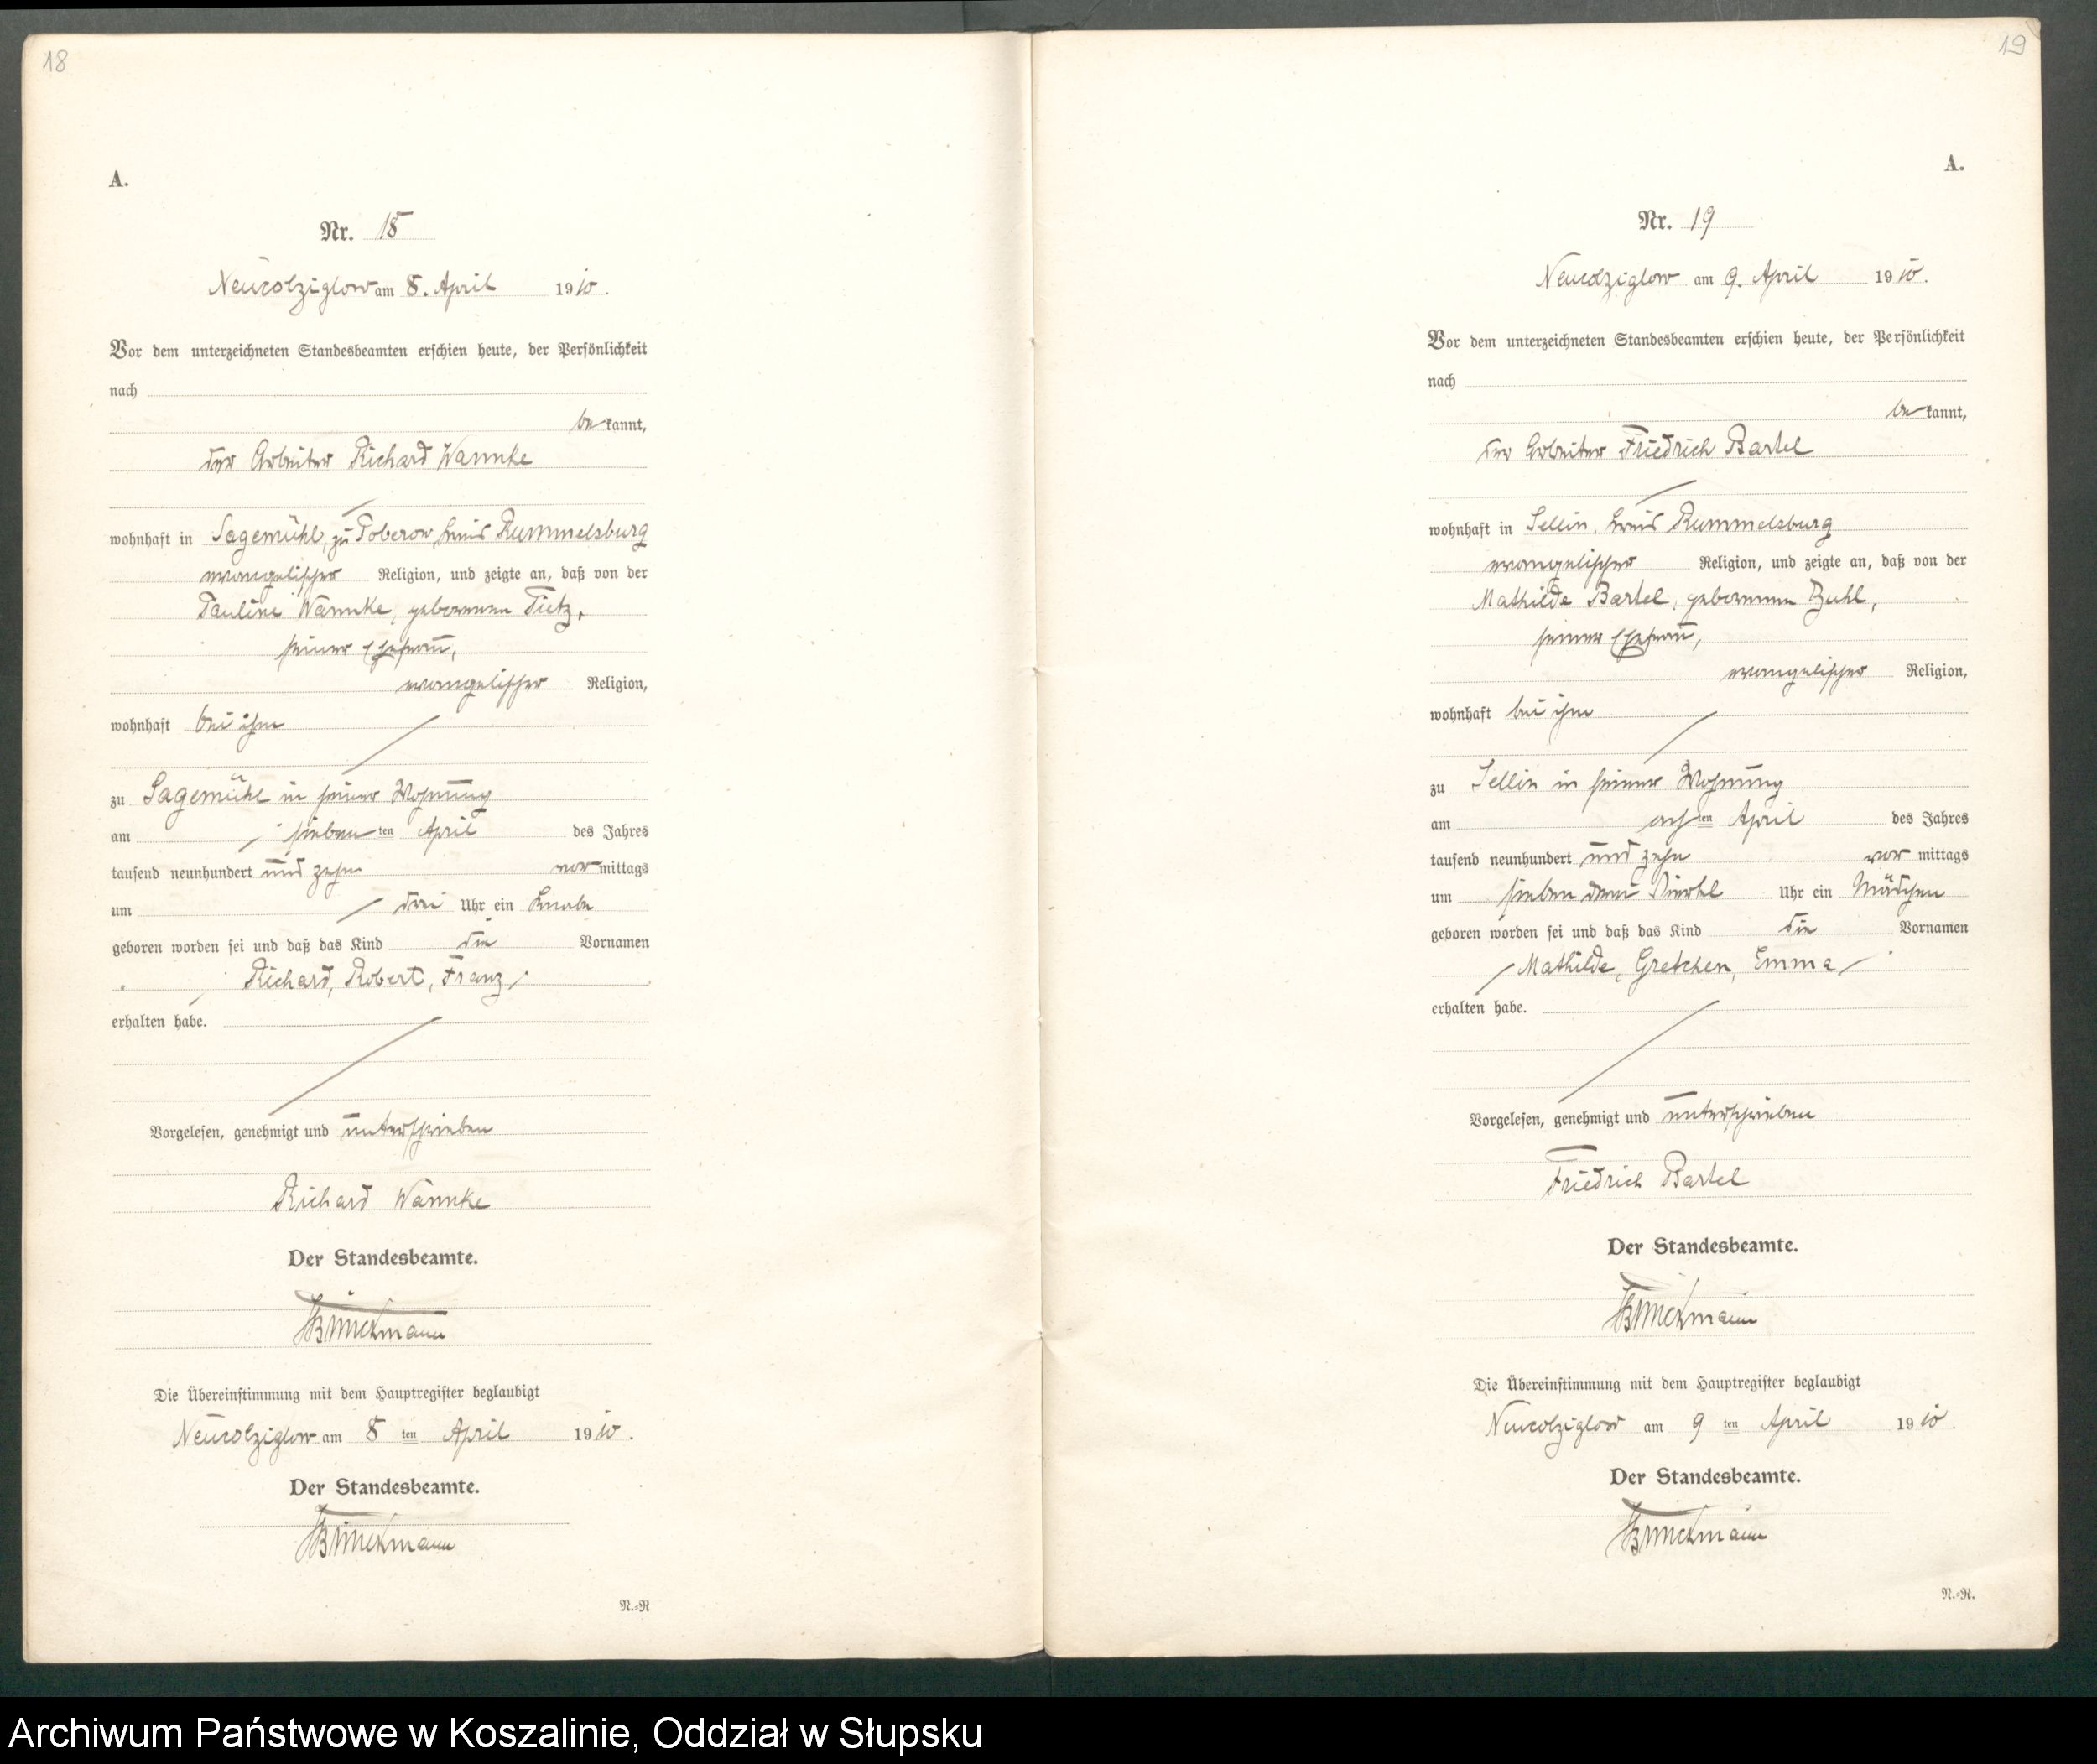 18
A.
Nr. 18
Neucolziglow am 8. April 1910.
Vor dem unterzeichneten Standesbeamten erschien heute, der Persönlichkeit
nach
bekannt,
der Arbeiter Richard Warmke
wohnhaft in Sagemühl, zu Poberow, Kreis Rummelsburg
evangelischer Religion, und zeigte an, daß von der
Pauline Warmke, geborenen Tietz,
seiner Ehefrau,
evangelischer Religion,
wohnhaft bei ihm
zu Sagemühl in seiner Wohnung
am sieben ten April des Jahres
tausend neunhundert und zehn vor mittags
um drei Uhr ein Knabe
geboren worden sei und daß das Kind die Vornamen
Richard, Robert, Franz
erhalten habe.
Vorgelesen, genehmigt und unterschrieben
Richard Warmke
Der Standesbeamte.
Die Übereinstimmung mit dem Hauptregister beglaubigt
Neucolziglow am 8 ten April 1910.
Der Standesbeamte.
N.=R
19
A.
Nr. 19
Neucolziglow am 9. April 1910.
Vor dem unterzeichneten Standesbeamten erschien heute, der Persönlichkeit
nach
bekannt,
der Arbeiter Friedrich Bartel
wohnhaft in Sellin, Kreis Rummelsburg
evangelischer Religion, und zeigte an, daß von der
Mathilde Bartel, geborenen Buhl,
seiner Ehefrau,
evangelischer Religion,
wohnhaft bei ihm
zu Sellin in seiner Wohnung
am achten April des Jahres
tausend neunhundert und zehn vor mittags
um sieben drei Viertel Uhr ein Mädchen
geboren worden sei und daß das Kind die Vornamen
Mathilde, Gretchen, Emma
erhalten habe.
Vorgelesen, genehmigt und unterschrieben
Friedrich Bartel
Der Standesbeamte.
Die Übereinstimmung mit dem Hauptregister beglaubigt
Neucolziglow am 9 ten April 1910.
Der Standesbeamte.
N.=R.
Archiwum Państwowe w Koszalinie, Oddział w Słupsku